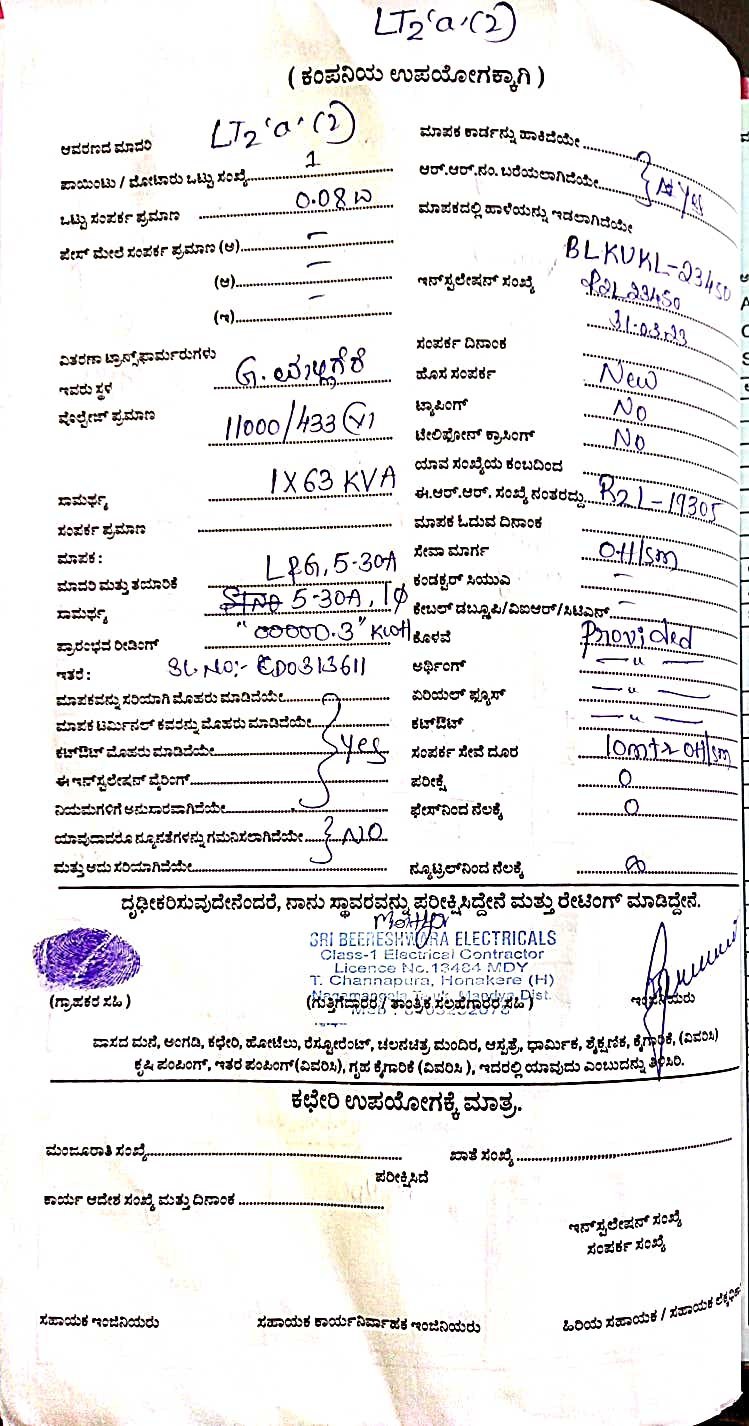 LT2 'a' (2)
( ಕಂಪನಿಯ ಉಪಯೋಗಕ್ಕಾಗಿ )
ಆವರಣದ ಮಾದರಿ LT2 'a' (2)
ಮಾಪಕ ಕಾರ್ಡನ್ನು ಹಾಕಿದೆಯೇ
ಪಾಯಿಂಟು / ಮೋಟಾರು ಒಟ್ಟು ಸಂಖ್ಯೆ 1
ಆರ್.ಆರ್.ನಂ. ಬರೆಯಲಾಗಿದೆಯೇ } Yes
ಒಟ್ಟು ಸಂಪರ್ಕ ಪ್ರಮಾಣ 0.08
ಮಾಪಕದಲ್ಲಿ ಹಾಳೆಯನ್ನು ಇಡಲಾಗಿದೆಯೇ
ಫೇಸ್ ಮೇಲೆ ಸಂಪರ್ಕ ಪ್ರಮಾಣ (ಅ) –
BLKVKL-23450
(ಆ) –
ಇನ್‌ಸ್ಟಲೇಷನ್ ಸಂಖ್ಯೆ R2L 23450
(ಇ) –
31.03.23
ಸಂಪರ್ಕ ದಿನಾಂಕ
ವಿತರಣಾ ಟ್ರಾನ್ಸ್‌ಫಾರ್ಮರುಗಳು
ಇವರು ಸ್ಥಳ
ಹೊಸ ಸಂಪರ್ಕ New
ವೋಲ್ಟೇಜ್ ಪ್ರಮಾಣ 11000/433 (V)
ಟ್ಯಾಪಿಂಗ್ No
ಟೇಲಿಫೋನ್ ಕ್ರಾಸಿಂಗ್ No
ಯಾವ ಸಂಖ್ಯೆಯ ಕಂಬದಿಂದ
ಸಾಮರ್ಥ್ಯ 1X63 KVA
ಈ.ಆರ್.ಆರ್. ಸಂಖ್ಯೆ ನಂತರದ್ದು R2L-19305
ಸಂಪರ್ಕ ಪ್ರಮಾಣ
ಮಾಪಕ ಓದುವ ದಿನಾಂಕ
ಮಾಪಕ :
ಸೇವಾ ಮಾರ್ಗ OH/sm
ಮಾದರಿ ಮತ್ತು ತಯಾರಿಕೆ L&G, 5-30A
ಕಂಡಕ್ಟರ್ ಸಿಯುಎ –
ಸಾಮರ್ಥ್ಯ 5-30A, 1Ø
ಕೇಬಲ್ ಡಬ್ಲ್ಯೂಪಿ/ವಿಐಆರ್/ಸಿಟಿಎನ್ –
ಪ್ರಾರಂಭವ ರೀಡಿಂಗ್ "00000.3" KWH
ಕೊಳವೆ Provided
ಇತರೆ : SL.No:- CD0313611
ಅರ್ಥಿಂಗ್ — " —
ಮಾಪಕವನ್ನು ಸರಿಯಾಗಿ ಮೊಹರು ಮಾಡಿದೆಯೇ
ಏರಿಯಲ್ ಫ್ಯೂಸ್ — " —
ಮಾಪಕ ಟರ್ಮಿನಲ್ ಕವರನ್ನು ಮೊಹರು ಮಾಡಿದೆಯೇ
ಕಟ್‌ಔಟ್ — " —
ಕಟ್‌ಔಟ್ ಮೊಹರು ಮಾಡಿದೆಯೇ } Yes
ಸಂಪರ್ಕ ಸೇವೆ ದೂರ 10mt2 OH/sm
ಈ ಇನ್‌ಸ್ಟಲೇಷನ್ ವೈರಿಂಗ್
ಪರೀಕ್ಷೆ 0
ನಿಯಮಗಳಿಗೆ ಅನುಸಾರವಾಗಿದೆಯೇ
ಫೇಸ್‌ನಿಂದ ನೆಲಕ್ಕೆ 0
ಯಾವುದಾದರೂ ನ್ಯೂನತೆಗಳನ್ನು ಗಮನಿಸಲಾಗಿದೆಯೇ } NO
ಮತ್ತು ಅದು ಸರಿಯಾಗಿದೆಯೇ
ನ್ಯೂಟ್ರಲ್‌ನಿಂದ ನೆಲಕ್ಕೆ ∞
ದೃಢೀಕರಿಸುವುದೇನೆಂದರೆ, ನಾನು ಸ್ಥಾವರವನ್ನು ಪರೀಕ್ಷಿಸಿದ್ದೇನೆ ಮತ್ತು ರೇಟಿಂಗ್ ಮಾಡಿದ್ದೇನೆ.
SRI BEERESHWARA ELECTRICALS
Class-1 Electrical Contractor
Licence No.13484 MDY
T. Channapura, Honakere (H)
Nagamangala Taluk, Mandya Dist.
(ಗ್ರಾಹಕರ ಸಹಿ )
(ಗುತ್ತಿಗೆದಾರರ / ತಾಂತ್ರಿಕ ಸಲಹೆಗಾರರ ಸಹಿ )
ವಾಸದ ಮನೆ, ಅಂಗಡಿ, ಕಛೇರಿ, ಹೋಟೆಲು, ರೆಸ್ಟೋರೆಂಟ್, ಚಲನಚಿತ್ರ ಮಂದಿರ, ಆಸ್ಪತ್ರೆ, ಧಾರ್ಮಿಕ, ಶೈಕ್ಷಣಿಕ, ಕೈಗಾರಿಕೆ, (ವಿವರಿಸಿ)
ಕೃಷಿ ಪಂಪಿಂಗ್, ಇತರ ಪಂಪಿಂಗ್(ವಿವರಿಸಿ), ಗೃಹ ಕೈಗಾರಿಕೆ (ವಿವರಿಸಿ ), ಇದರಲ್ಲಿ ಯಾವುದು ಎಂಬುದನ್ನು ತಿಳಿಸಿರಿ.
ಕಛೇರಿ ಉಪಯೋಗಕ್ಕೆ ಮಾತ್ರ.
ಮಂಜೂರಾತಿ ಸಂಖ್ಯೆ
ಖಾತೆ ಸಂಖ್ಯೆ
ಪರೀಕ್ಷಿಸಿದೆ
ಕಾರ್ಯ ಆದೇಶ ಸಂಖ್ಯೆ ಮತ್ತು ದಿನಾಂಕ
ಇನ್‌ಸ್ಟಲೇಷನ್ ಸಂಖ್ಯೆ
ಸಂಪರ್ಕ ಸಂಖ್ಯೆ
ಸಹಾಯಕ ಇಂಜಿನಿಯರು
ಸಹಾಯಕ ಕಾರ್ಯನಿರ್ವಾಹಕ ಇಂಜಿನಿಯರು
ಹಿರಿಯ ಸಹಾಯಕ / ಸಹಾಯಕ